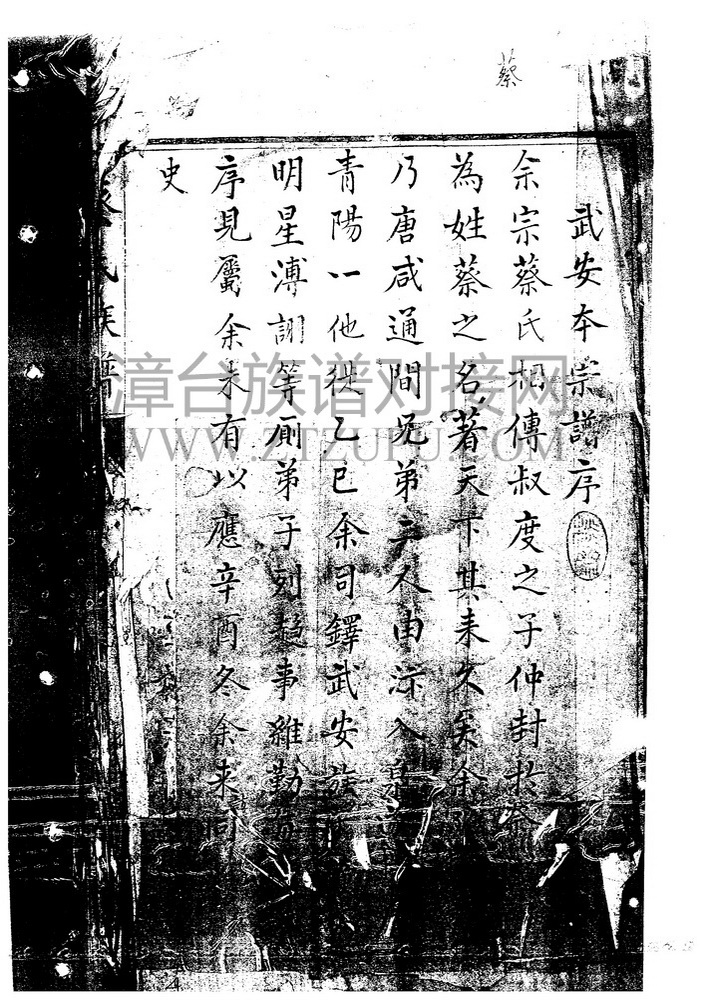 蔡
武安本宗譜序
余宗蔡氏相傳叔度之子仲封扵蔡
為姓蔡之名著天下其来久矣余
乃唐咸通間兄弟三人由 入
青陽一他徙乙巳余司鐸武安族
明星溥詡等厠弟子列趍事雖勤
序見屬余未有以應辛酉冬余来
史
蔡氏族譜
漳台族谱对接网
WWW.ZTZUPU.COM